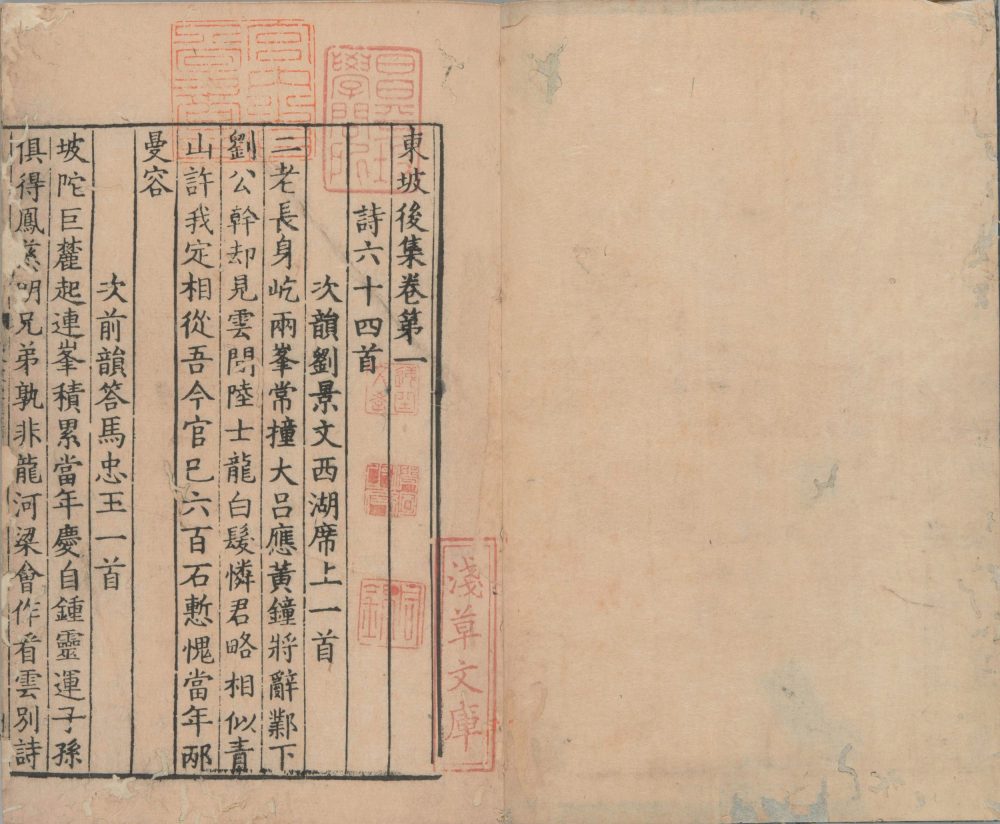 東坡後集卷第一
詩六十四首
次韻劉景文西湖席上一首
二老長身屹兩峯常撞大呂應黃鐘將辭鄴下
劉公幹却見雲間陸士龍白髮憐君略相似青
山許我定相從吾今官已六百石慙愧當年邴
曼容
次前韻答馬忠玉一首
坡陀巨麓起連峯積累當年慶自鍾靈運子孫
俱得鳳慈明兄弟孰非龍河梁會作看雲別詩
昌平坂
學問所
淺草文庫